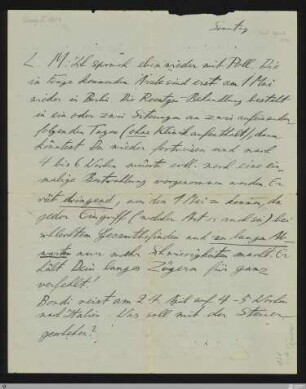 Sonntag
L. M. Ich sprach eben wieder mit Poll. Die
in Frage kommenden Ärzte sind erst am 1 Mai
wieder in Berlin. Die Röntgen-Behandlung besteht
in ein oder zwei Sitzungen an zwei aufeinander
folgenden Tagen (ohne Klinikaufenthalt), dann
könntest Du wieder fortreisen und nach
4 bis 6 Wochen müsste evtl. noch eine ein-
malige Bestrahlung vorgenommen werden. Er
rät dringend, um den 1 Mai zu kommen, da
jeder Eingriff (welcher Art er auch sei) bei
schlechtem Gesamtbefinden und zu langem
Warten nur mehr Schwierigkeiten macht. Er
hält Dein langes Zögern für ganz
verfehlt!
Bondi reist am 24. April auf 4-5 Wochen
nach Italien. Was soll mit der Steuer
geschehen?